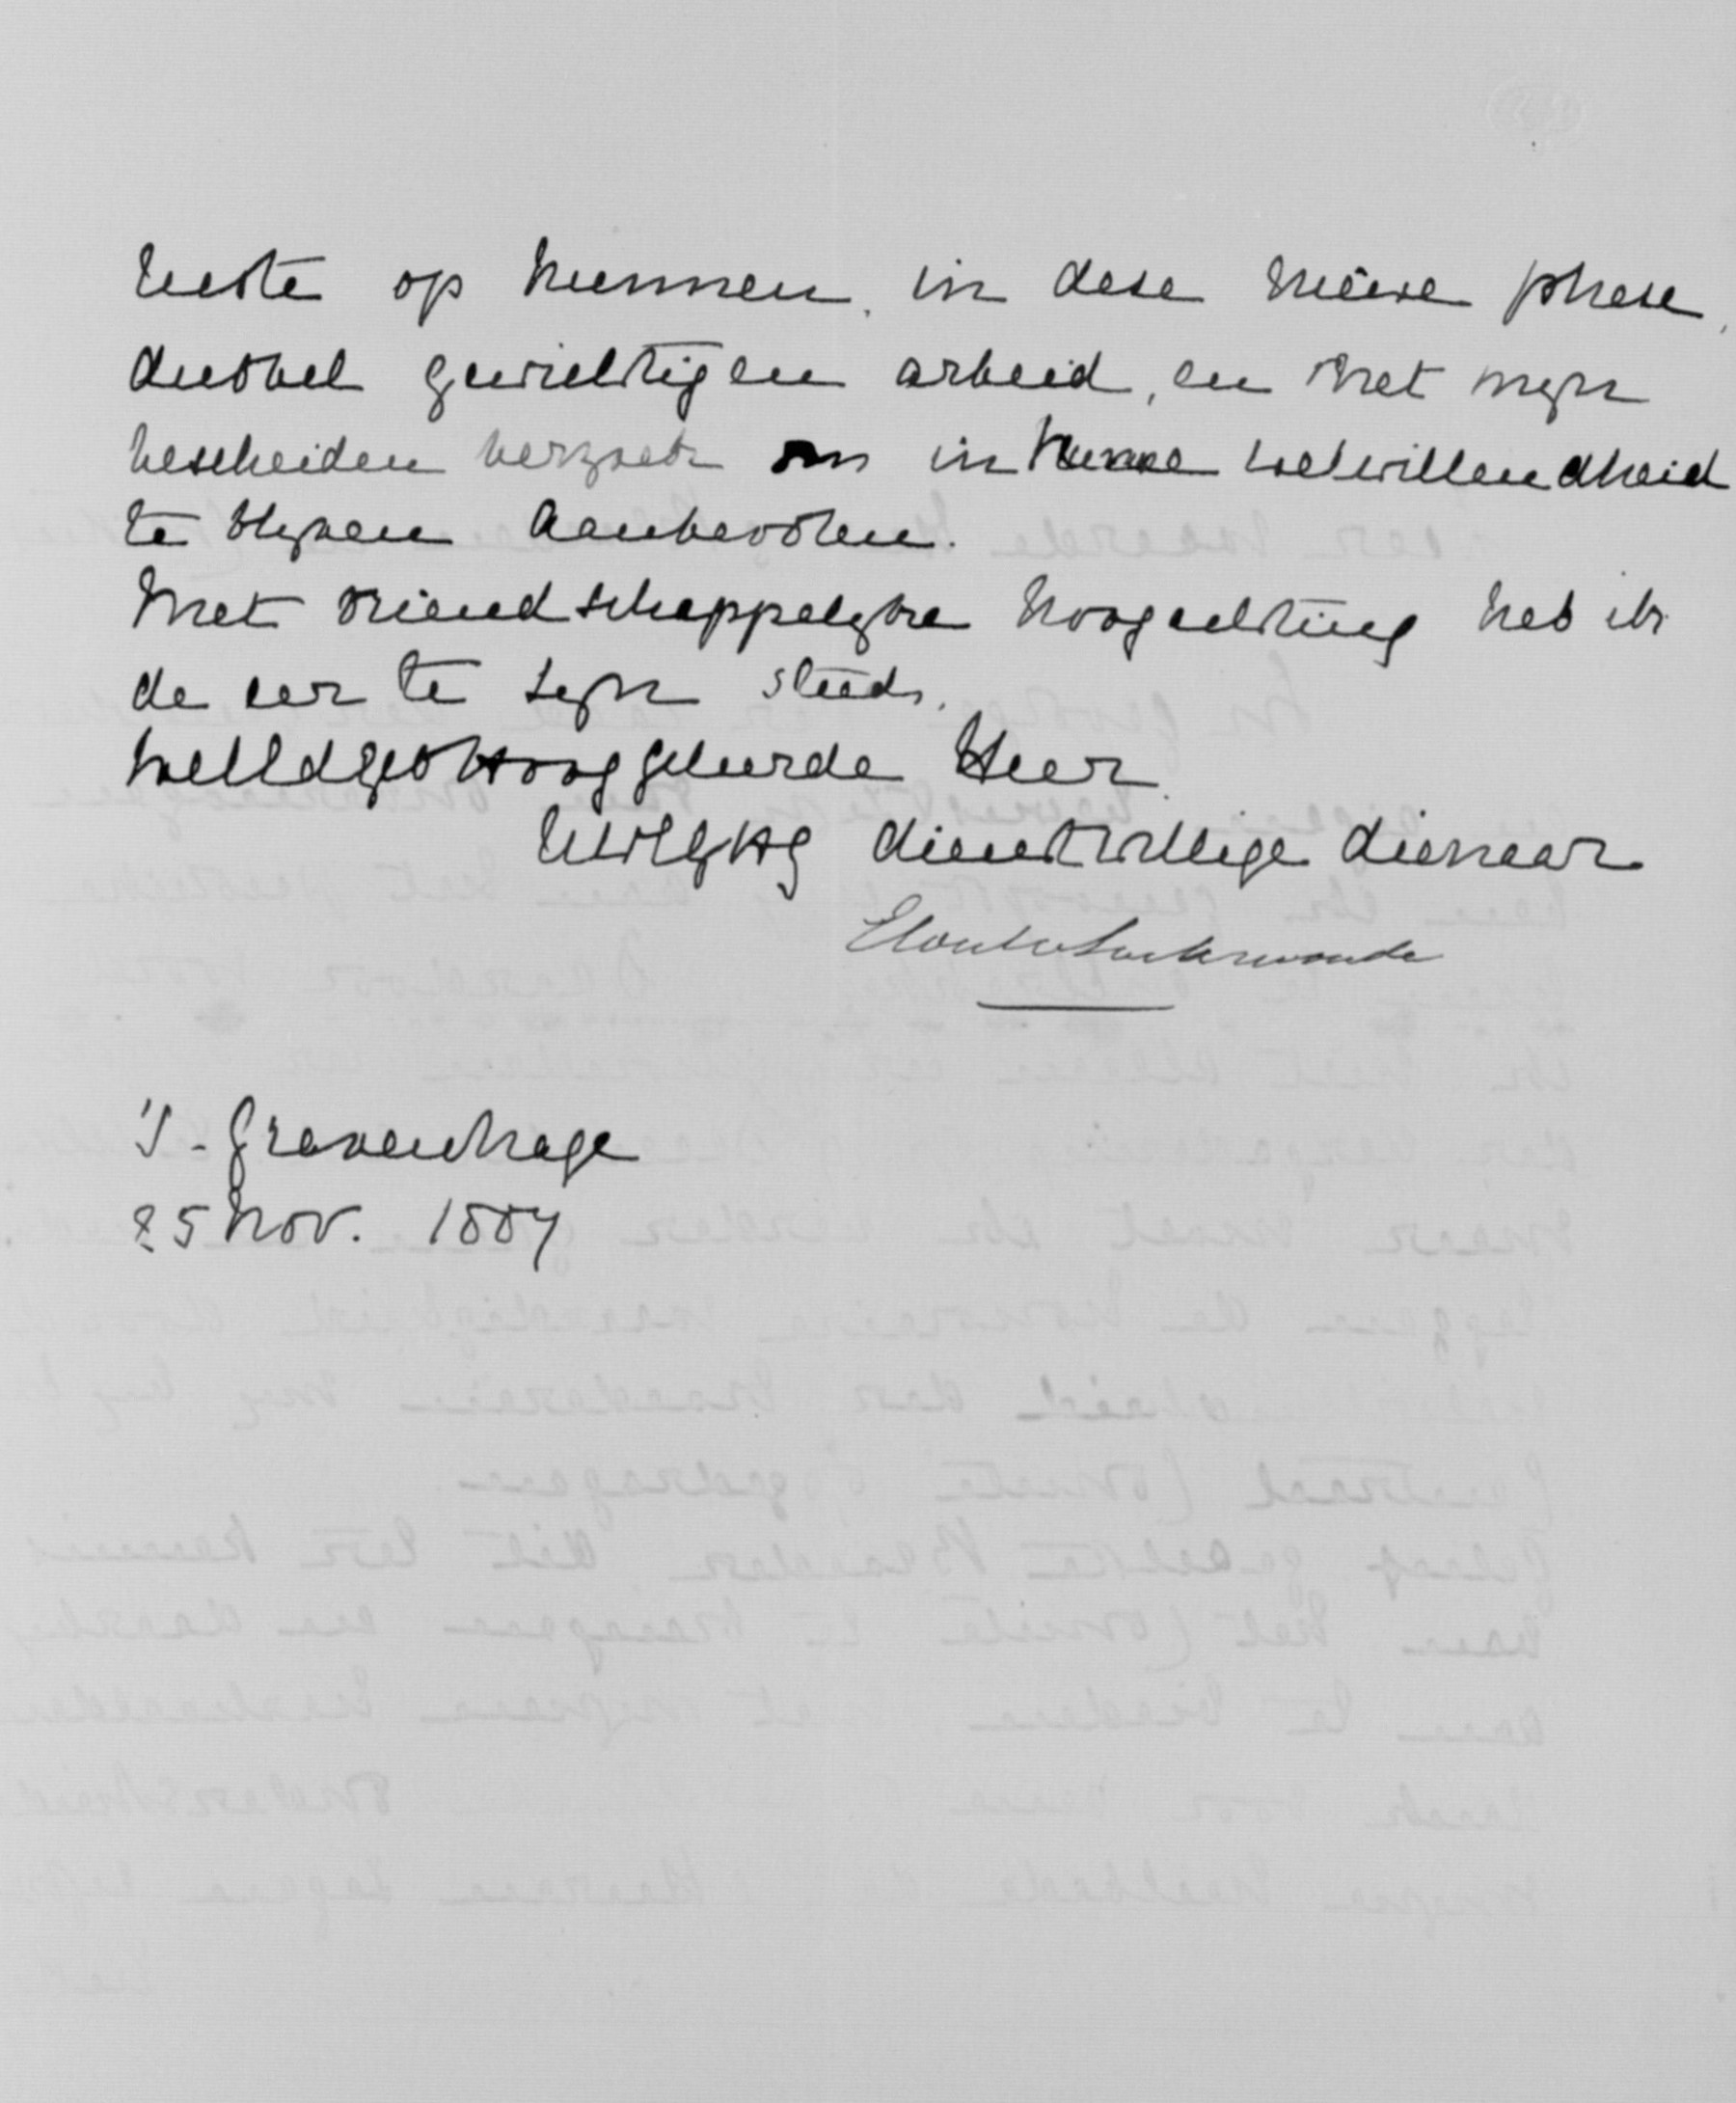 beste op hunnen, in deze nieuwe phase,
dubbel gewichtigen arbeid, en met mijn
bescheiden verzoek om in hunne welwillendheid
te blijven aanbevolen.
Met vriendschappelijke hoogachting heb ik
de eer te zijn steeds,
WelEdelgeb Hooggeleerde Heer
dienstwillige dienaar
Elout v Soeterwoude
's-Gravenhage
25 Nov. 1884